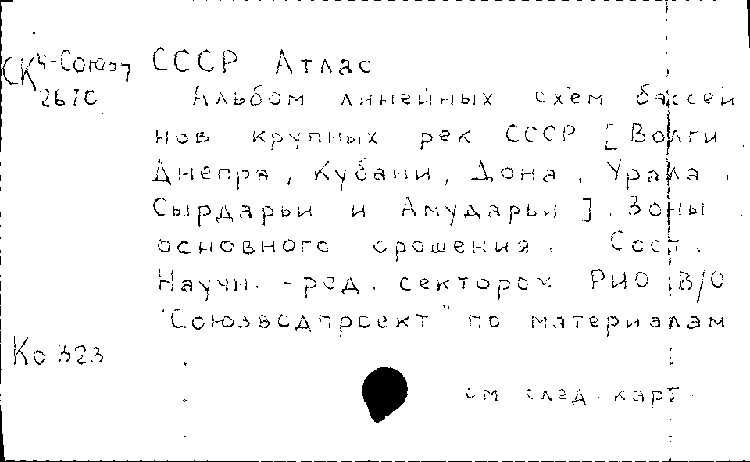 СК 4-Союз 7
2670
СССР Атлас
Альбом линейных схем бассей
нов крупных рек СССР [Волги
Днепра, Кубани, Дона, Урала,
Сырдарьи и Амударьи]. Зоны
основного орошения. Сост.
Научн.-ред. сектором РИО В/О
"Союзводпроект" по материалам
Ко 323
см след. карт.